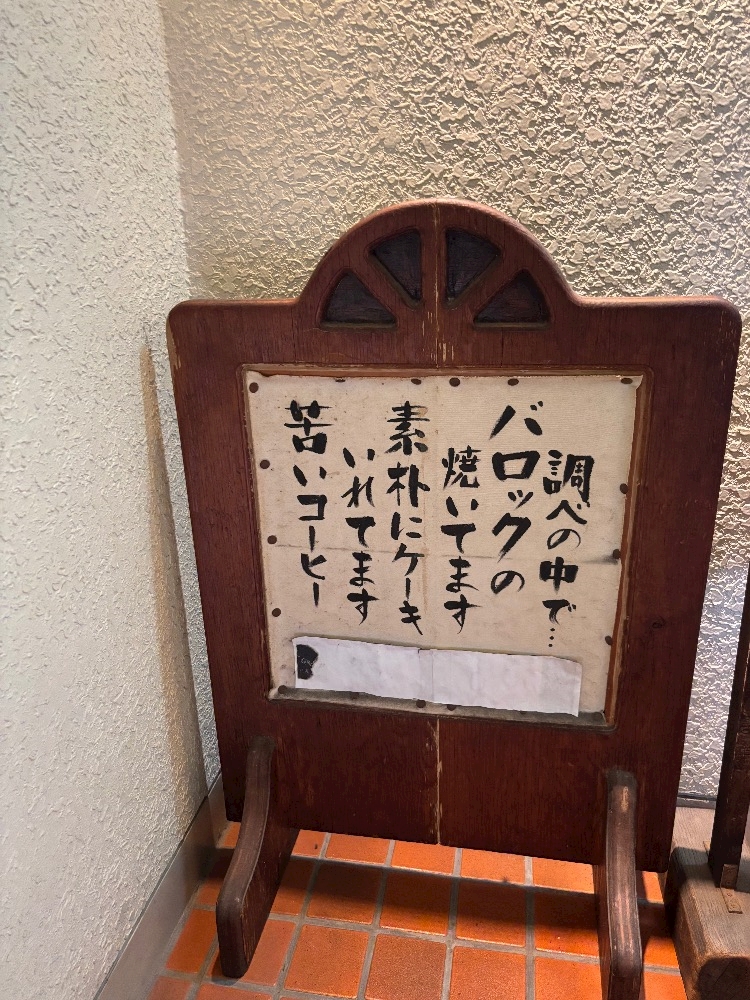 苦いコーヒー
いれてます
素朴にケーキ
焼いてます
バロックの
調べの中で…